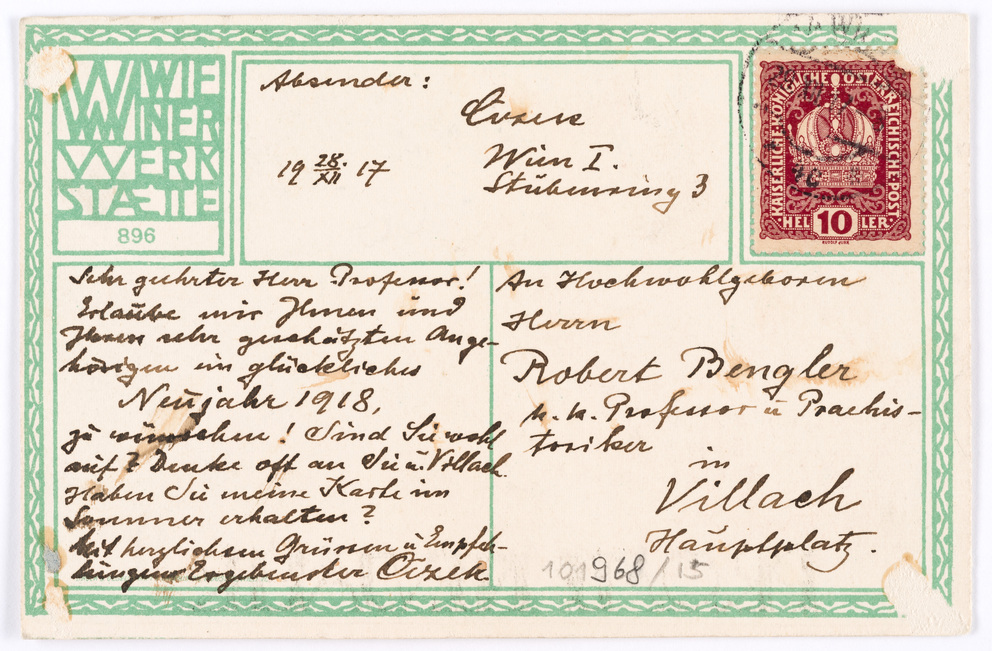 WIE
NER
WERK
STÆTTE
896
Absender:
Cizek
19 28./XII 17
Wien I.
Stubenring 3
KAISERLICHE KÖNIGLICHE ÖSTERREICHISCHE POST
HELLER
10
Sehr geehrter Herr Professor!
Erlaube mir Ihnen und
Ihren sehr geschätzten Ange-
hörigen ein glückliches
Neujahr 1918,
zu wünschen! Sind Sie wohl
auf? Denke oft an Sie u. Villach.
Haben Sie meine Karte im
Sommer erhalten?
Mit herzlichsen Grüssen u Empfeh-
lungen Ergebenster Cizek
An Hochwohlgeboren
Herrn
Robert Bengler
k. k. Professor u Praehis-
toriker
in
Villach
Hauptplatz.
101968/15